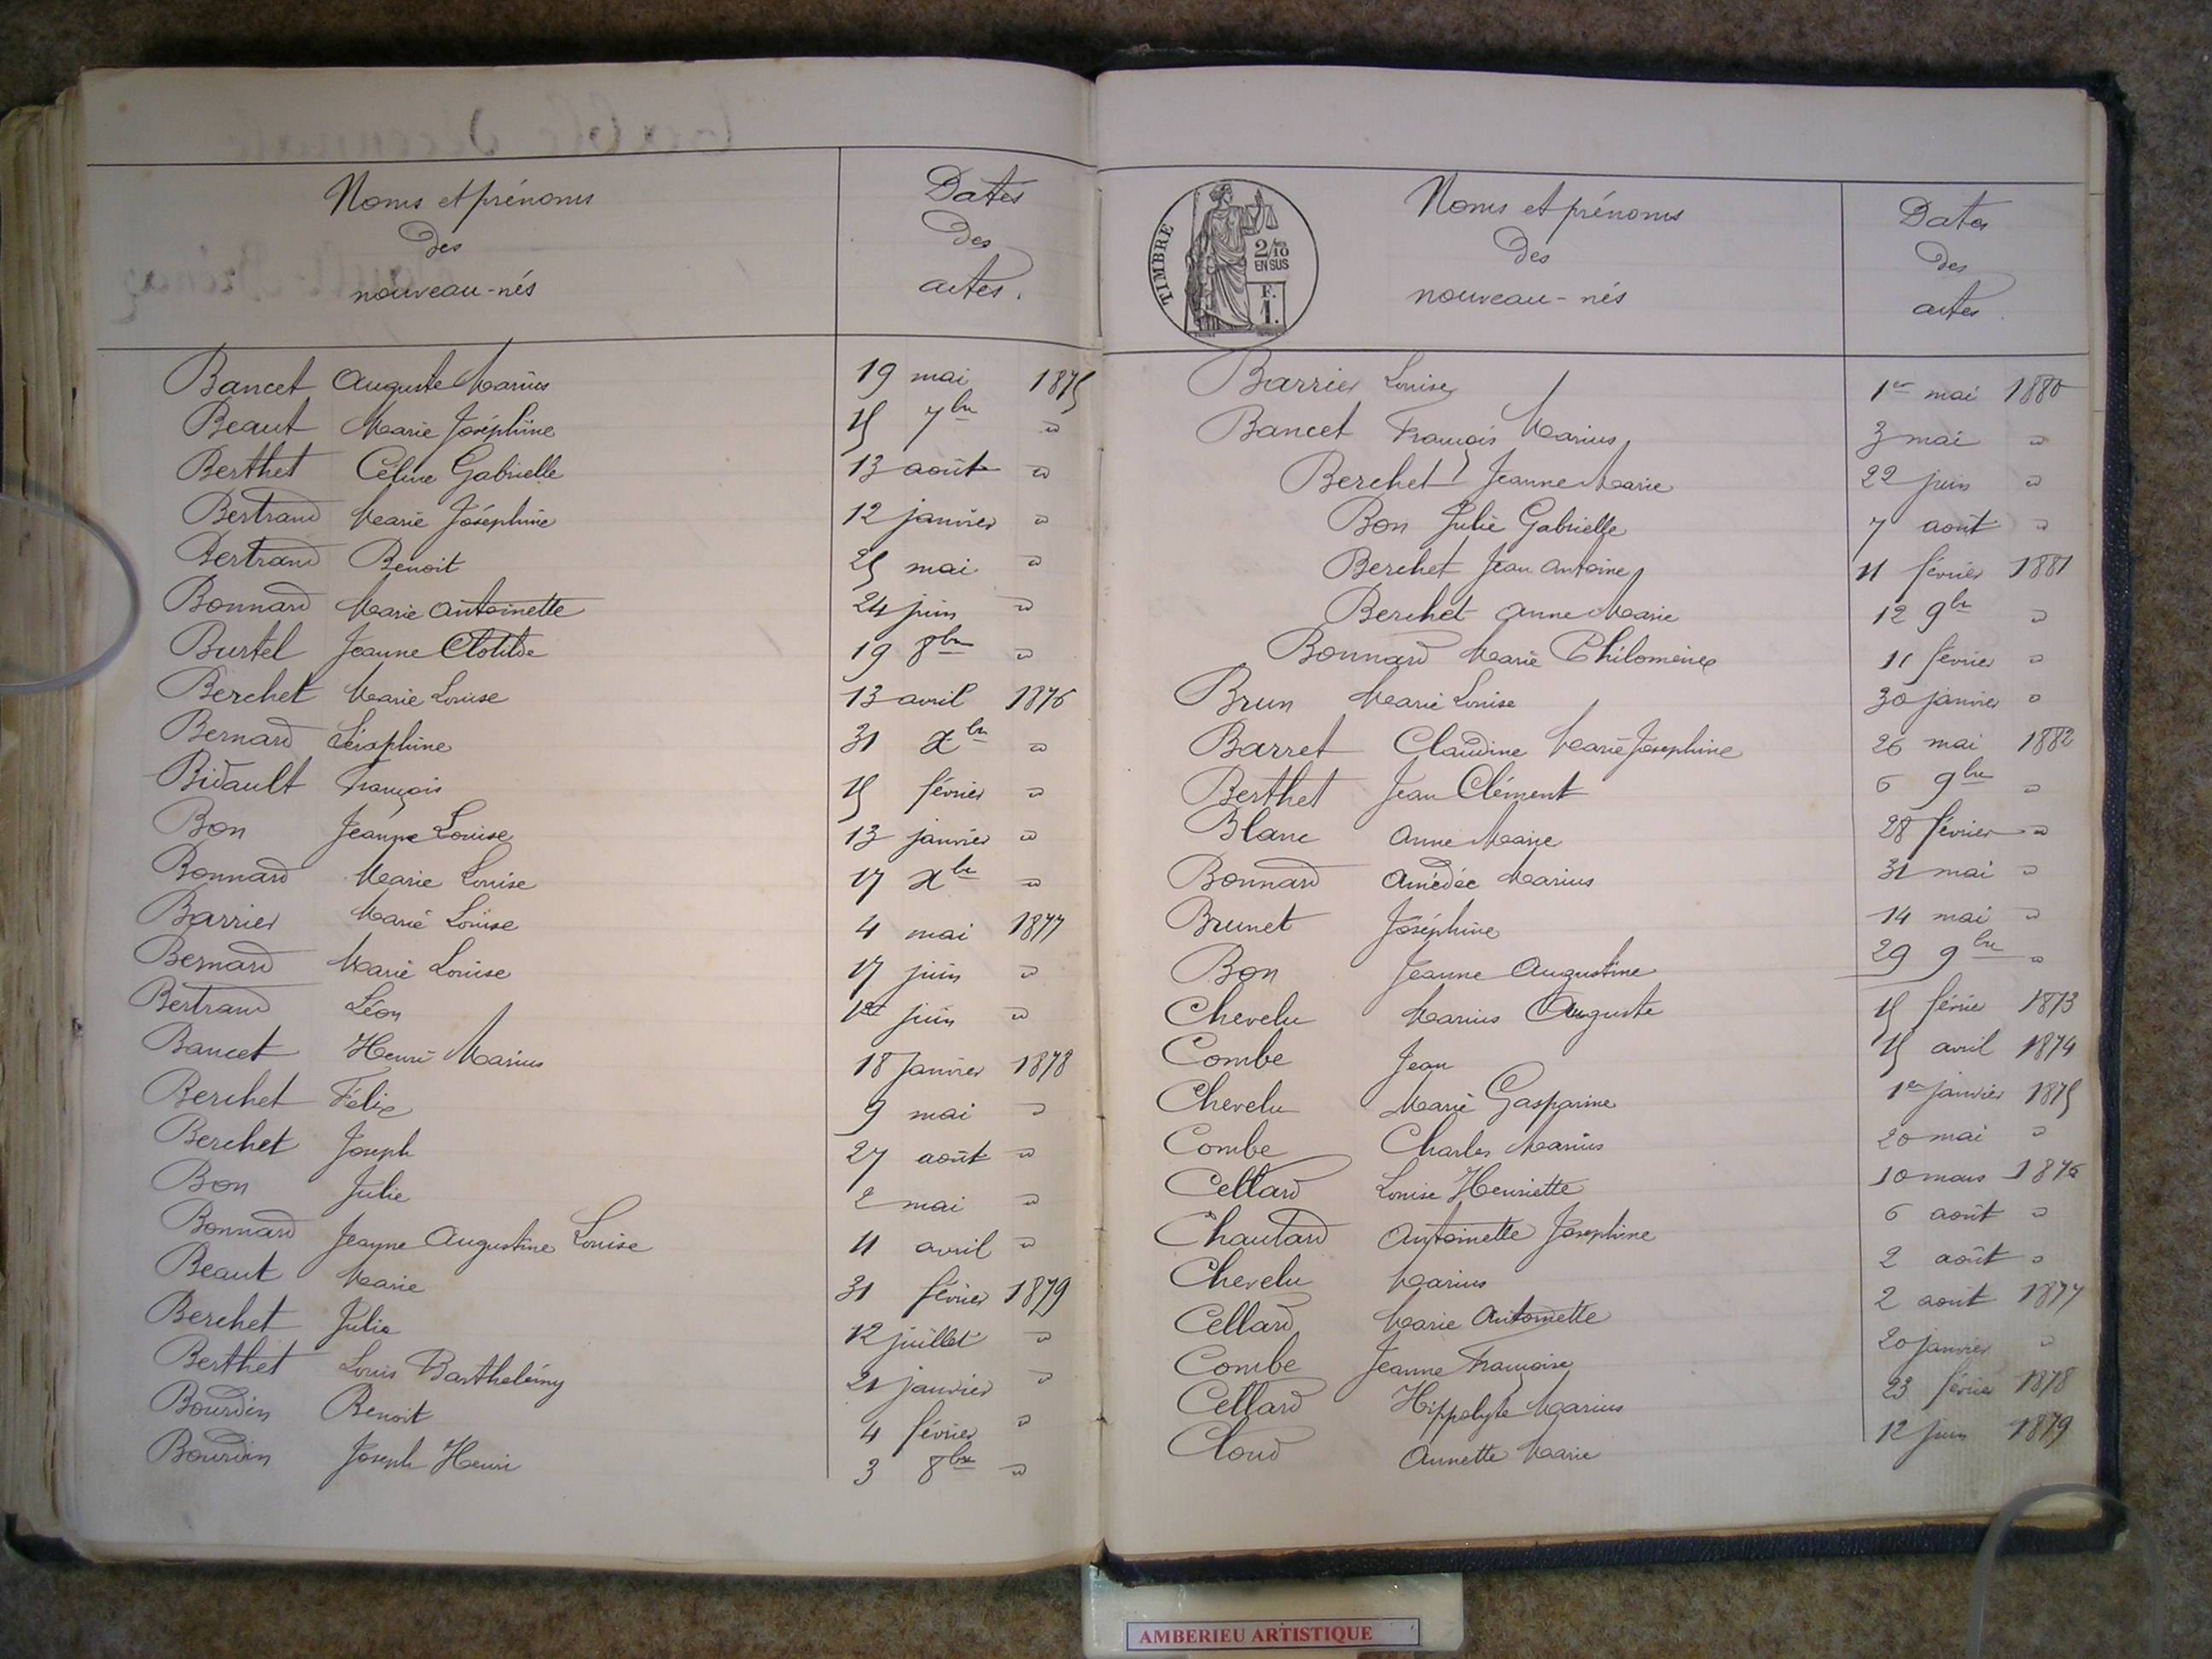 Noms et prénoms
des
nouveau-nés
Dates
des
actes.
Bancet Auguste Marius 19 mai 1875
Beaut Marie Joséphine 15 7bre "
Berthet Céline Gabrielle 13 août "
Bertrand Marie Joséphine 12 janvier "
Bertrand Benoit 25 mai "
Bonnard Marie Antoinette 24 juin "
Burtel Jeanne Clotilde 19 8bre "
Berchet Marie Louise 13 avril 1876
Bernard Séraphine 31 Xbre "
Bidault François 15 février "
Bon Jeanne Louise 13 janvier "
Bonnard Marie Louise 17 Xbre "
Barrier Marie Louise 4 mai 1877
Bernard Marie Louise 17 juin "
Bertrand Léon 1er juin "
Bancet Henri Marius 18 Janvier 1878
Berchet Félix 9 mai "
Berchet Joseph 27 août "
Bon Julie 2 mai "
Bonnard Jeanne Augustine Louise 11 avril "
Beaut Marie 31 février 1879
Berchet Julie 12 juillet "
Berthet Louis Barthelémy 21 janvier "
Bourdin Benoit 4 février "
Bourdin Joseph Henri 3 8bre "
TIMBRE
2/10
EN SUS
F.
1.
Noms et prénoms
des
nouveau-nés
Dates
des
actes.
Barrier Louise 1er mai 1880
Bancet François Marius 3 mai "
Berchet Jeanne Marie 22 juin "
Bon Julie Gabrielle 7 août "
Berchet Jean Antoine 11 février 1881
Berchet Anne Marie 12 9bre "
Bonnard Marie Philomène 11 février "
Brun Marie Louise 30 janvier "
Barret Claudine Marie Josephine 26 mai 1882
Berthet Jean Clément 6 9bre "
Blanc Anne Marie 28 février "
Bonnard Amédée Marius 31 mai "
Brunet Joséphine 14 mai "
Bon Jeanne Augustine 29 9bre "
Chevelu Marius Auguste 15 février 1873
Combe Jean 15 avril 1874
Chevelu Marie Gasparine 1er janvier 1875
Combe Charles Marius 20 mai "
Cellard Louise Henriette 10 mars 1876
Chautard Antoinette Josephine 6 août "
Chevelu Marius 2 août "
Cellard Marie Antoinette 2 août 1877
Combe Jeanne Françoise 20 janvier "
Cellard Hippolyte Marius 23 février 1878
Cloud Annette Marie 12 juin 1879
AMBERIEU ARTISTIQUE